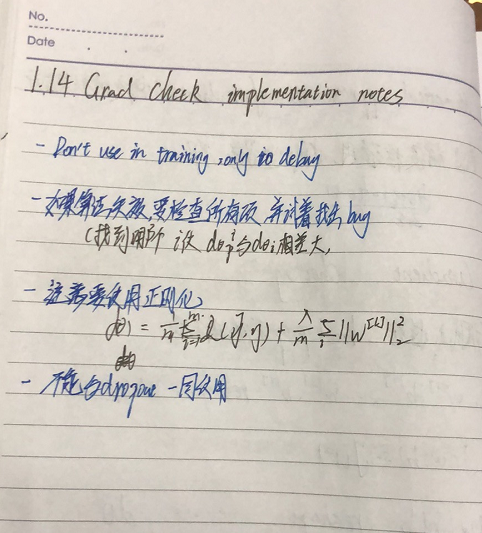 No.
Date
1.14 Grad check implementation notes
- Don't use in training, only to debug
- 如果算法失败,要检查所有项,并试着找出bug
(找到哪个 dθ^i 与dθi相差大,
- 注意要使用正则化
= 1/m Σ i=1 m L(ŷ,y) + λ/m Σ ||W^[l]||²₂
- 不能与dropout 一同使用